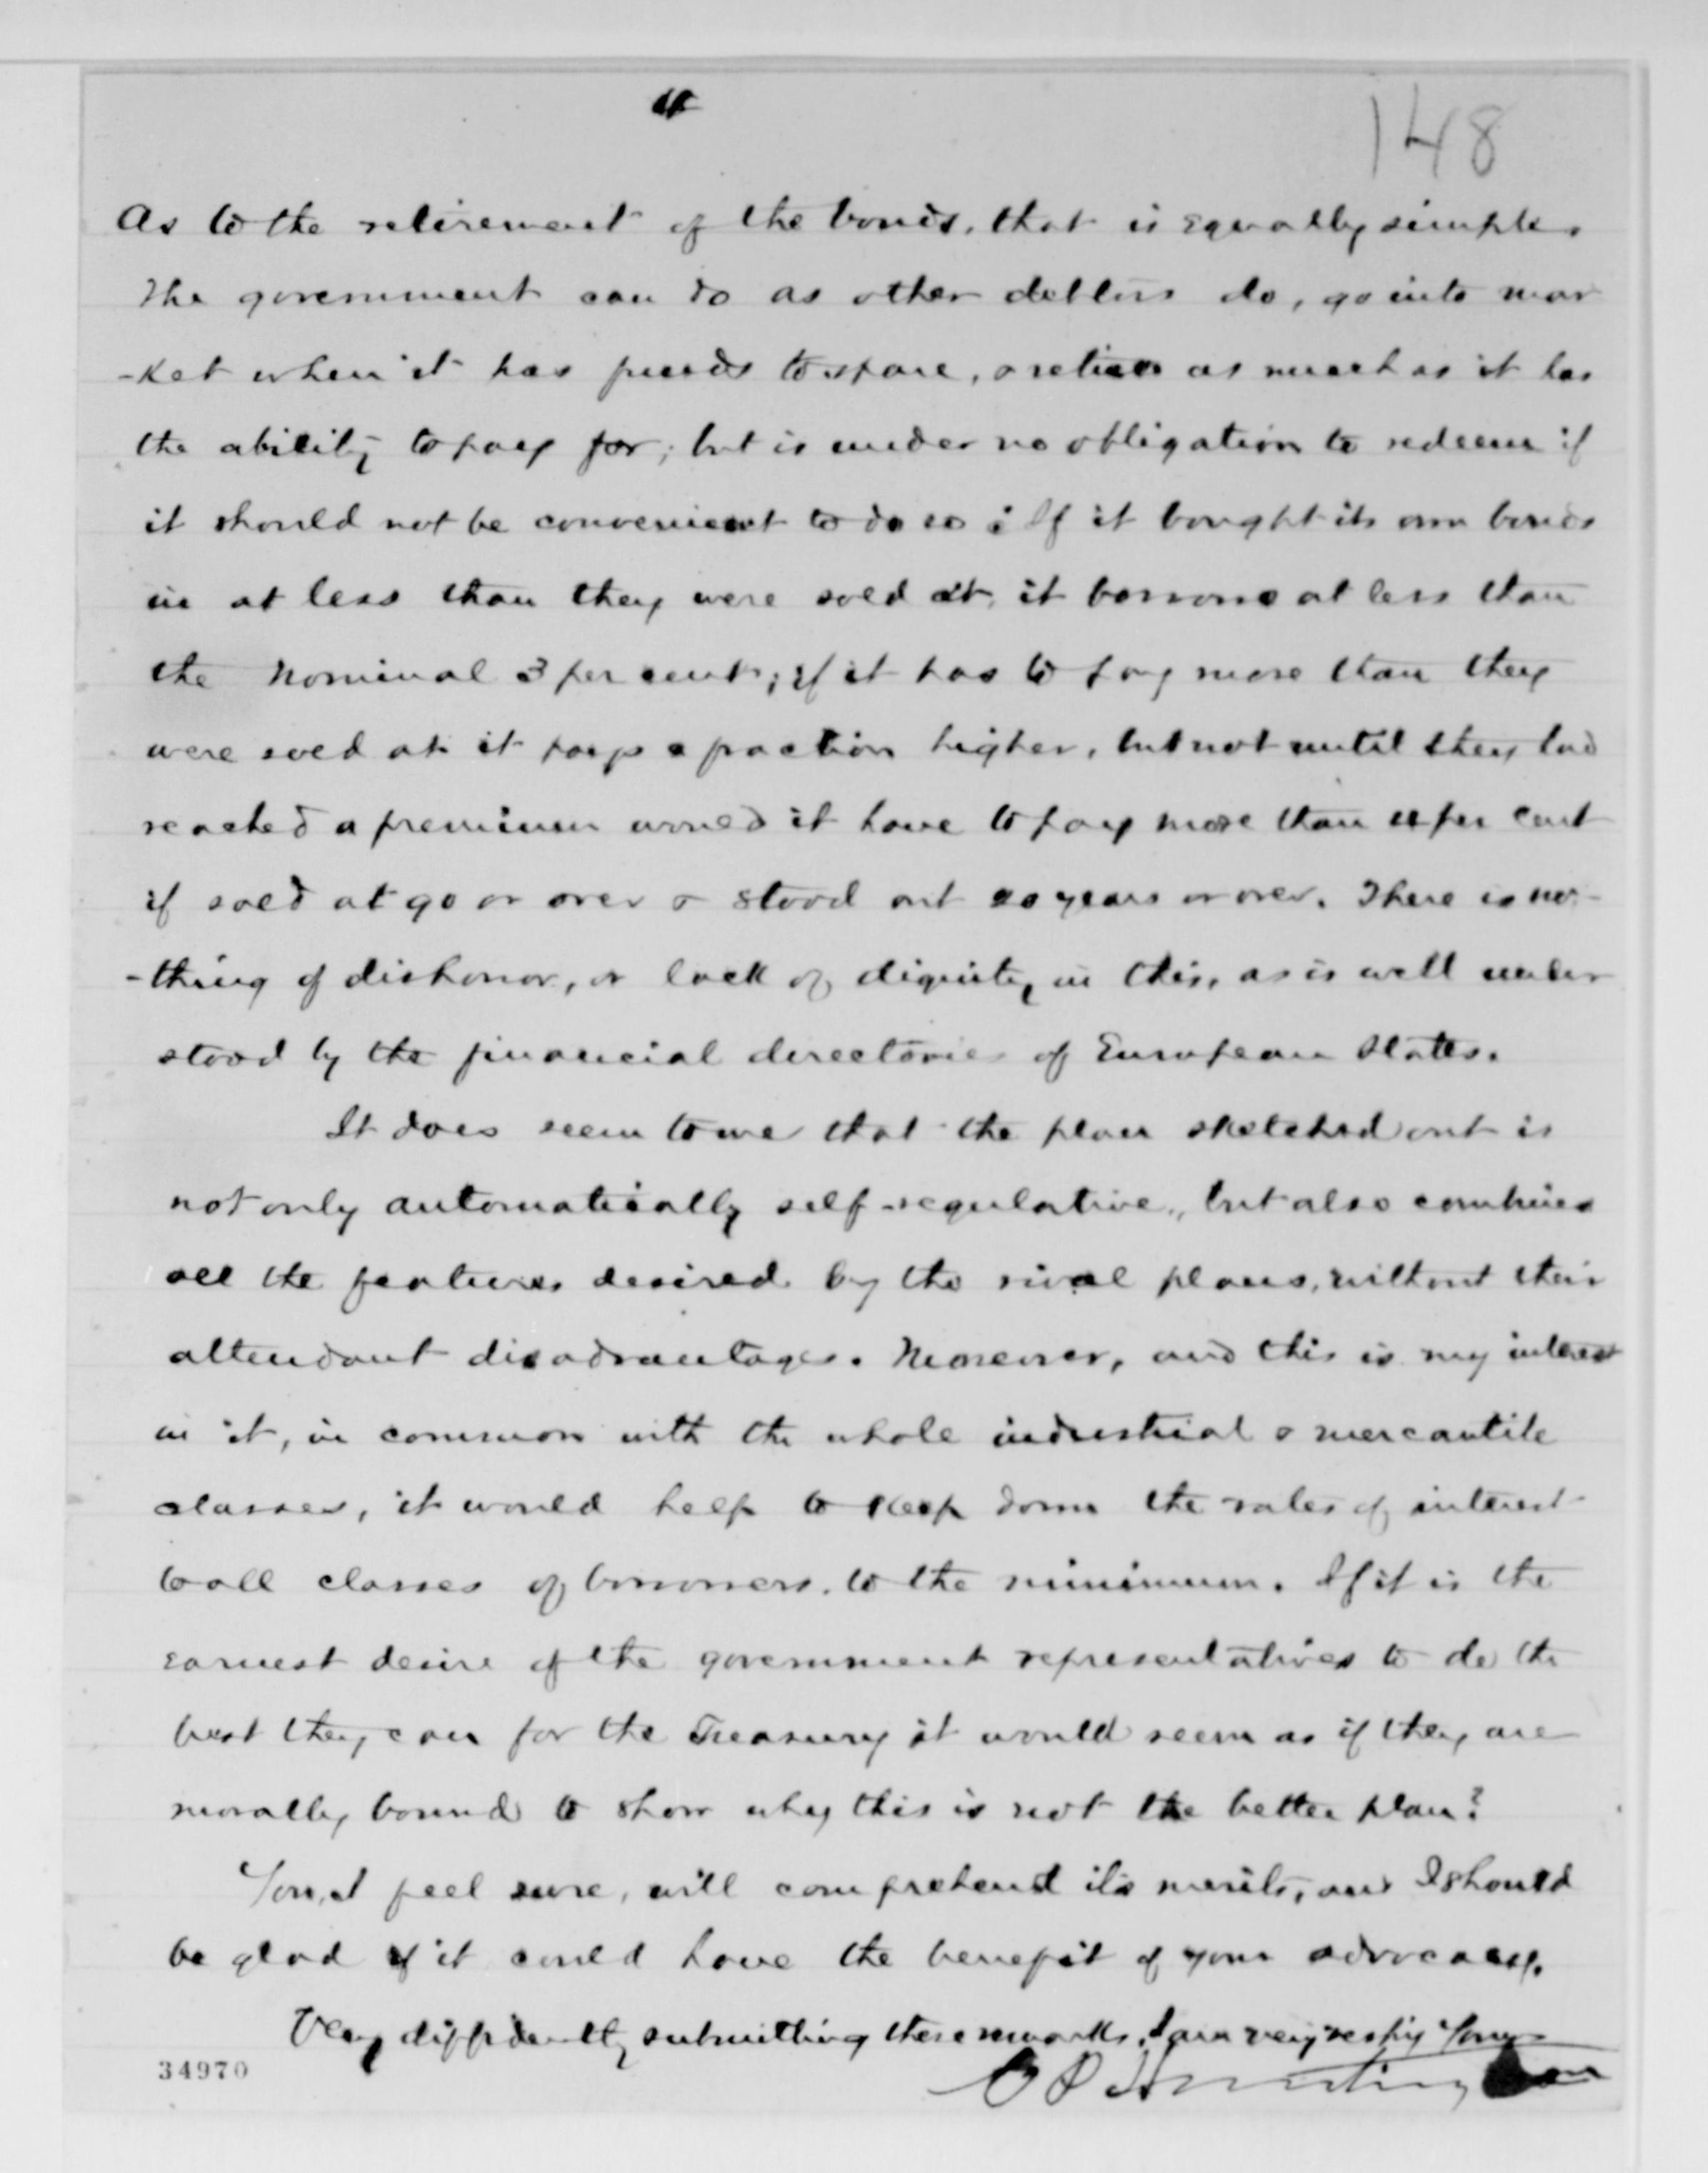 4
148
As to the retirement of the bonds, that is equally simple.
The government can do as other debtors do, go into mar
-ket when it has funds to spare, & retire as much as it has
the ability to pay for; but is under no obligation to redeem if
it should not be convenient to do so. If it bought its own bonds
in at less than they were sold at, it borrows at less than
the nominal 3 per cent; if it has to pay more than they
were sold at it pays a fraction higher, but not until they had
reached a premium would it have to pay more than 4 per cent
if sold at 90 or over & stood out 20 years or over. There is no-
-thing of dishonor, or lack of dignity in this, as is well under
stood by the financial directories of European States.
It does seem to me that the plan sketched out is
not only automatically self-regulative, but also combines
all the features desired by the rival plans, without their
attendant disadvantages. Moreover, and this is my interest
in it, in common with the whole industrial & mercantile
classes, it would help to keep down the rates of interest
to all classes of borrowers, to the minimum. If it is the
earnest desire of the government representatives to do the
best they can for the Treasury it would seem as if they are
morally bound to show why this is not the better plan?
You, I feel sure, will comprehend its merits, and I should
be glad if it could have the benefit of your advocacy.
Very diffidently submitting these remarks, I am very resply Yours
Huntington
34970